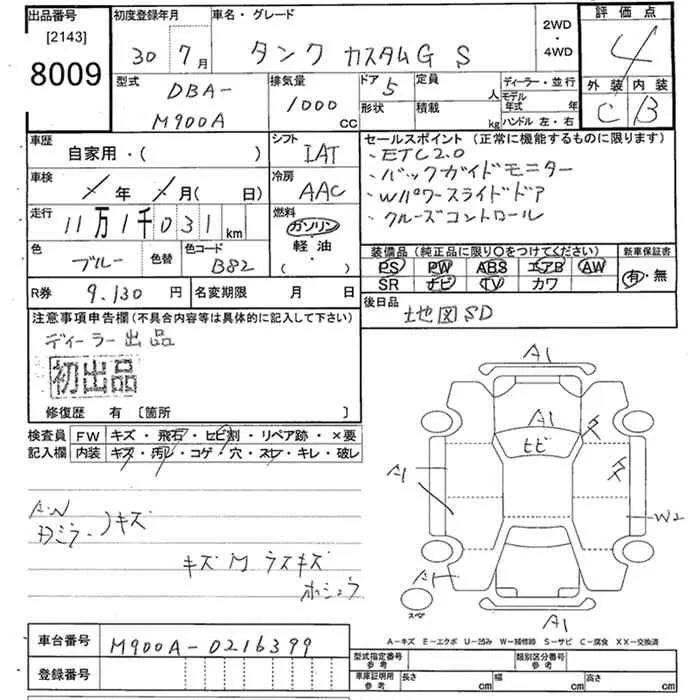 出品番号
[2143]
8009
初度登録年月
30年 7月
車名・グレード
タンク カスタムG S
2WD
・
4WD
評価点
4
外装 内装
C B
型式
DBA-
M900A
排気量
1000
CC
ドア 5
形状
定員
人
積載
kg
ディーラー・並行
モデル
年式 年
ハンドル 左・右
車歴
自家用・( )
シフト
IAT
車検
年 月( 日)
冷房
AAC
走行
11万1千031km
燃料
ガソリン
・軽油・
( )
色
ブルー
色替
色コード
B82
セールスポイント (正常に機能するものに限ります)
・ETC2.0
・バックガイドモニター
・Wパワースライドドア
・クルーズコントロール
装備品(純正品に限り○をつけてください)
PS PW ABS エアB AW
SR ナビ TV カワ
新車保証書
有・無
R券 9.130円
名変期限 月 日
後日品
地図SD
注意事項申告欄(不具合内容等は具体的に記入して下さい)
ディーラー出品
初出品
修復歴 有 〔箇所 〕
検査員
記入欄
FW キズ・飛石・ヒビ割・リペア跡・×要
内装 キズ・汚れ・コゲ・穴・スレ・キレ・破レ
A.W
キズ
キズM ラスキズ
ホシュウ
A1
A1
ヒビ
A1
W2
A1
A1
スペア
A−キズ E−エクボ U−凹み W−補修跡 S−サビ C−腐食 XX−交換済
車台番号 M900A-0216399
登録番号
型式指定番号
参考
類別区分番号
参考
車庫証明用
参考
長さ cm
幅 cm
高さ cm